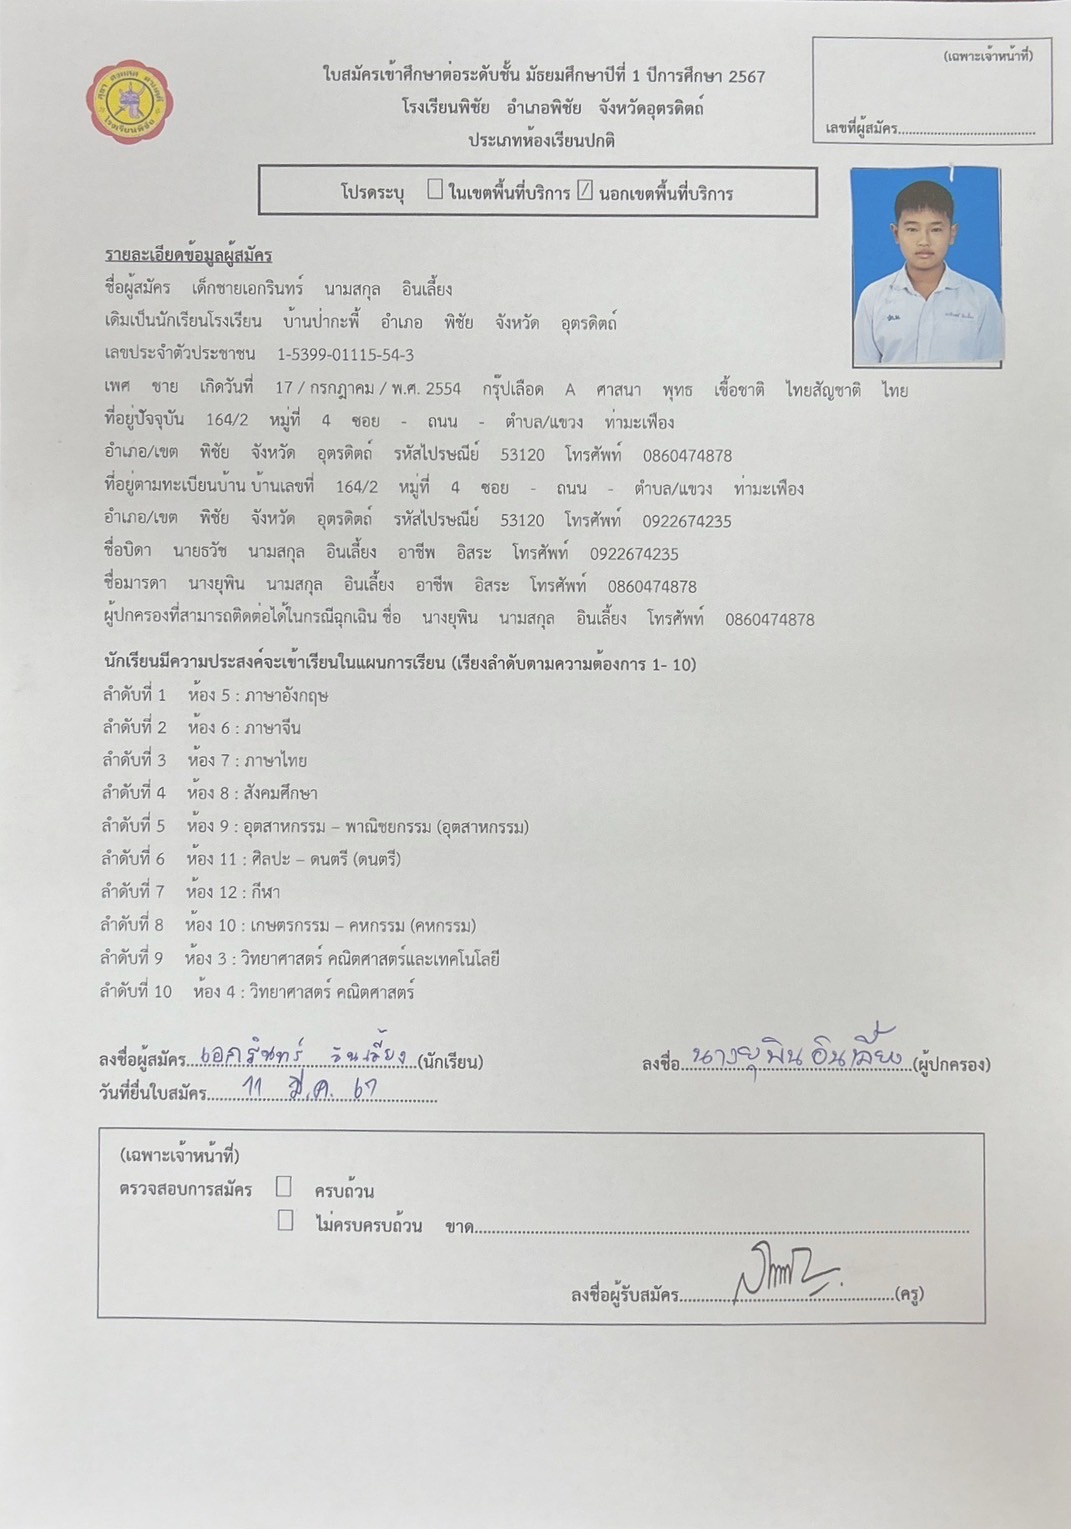 (เฉพาะเจ้าหน้าที่)
เลขที่ผู้สมัคร....................................
ใบสมัครเข้าศึกษาต่อระดับชั้น มัธยมศึกษาปีที่ 1 ปีการศึกษา 2567
โรงเรียนพิชัย อำเภอพิชัย จังหวัดอุตรดิตถ์
ประเภทห้องเรียนปกติ
โรงเรียนพิชัย
โปรดระบุ ☐ ในเขตพื้นที่บริการ ☑ นอกเขตพื้นที่บริการ
รายละเอียดข้อมูลผู้สมัคร
ชื่อผู้สมัคร เด็กชายเอกรินทร์ นามสกุล อินเลี้ยง
เดิมเป็นนักเรียนโรงเรียน บ้านป่ากะพี้ อำเภอ พิชัย จังหวัด อุตรดิตถ์
เลขประจำตัวประชาชน 1-5399-01115-54-3
เพศ ชาย เกิดวันที่ 17 / กรกฎาคม / พ.ศ. 2554 กรุ๊ปเลือด A ศาสนา พุทธ เชื้อชาติ ไทยสัญชาติ ไทย
ที่อยู่ปัจจุบัน 164/2 หมู่ที่ 4 ซอย - ถนน - ตำบล/แขวง ท่ามะเฟือง
อำเภอ/เขต พิชัย จังหวัด อุตรดิตถ์ รหัสไปรษณีย์ 53120 โทรศัพท์ 0860474878
ที่อยู่ตามทะเบียนบ้าน บ้านเลขที่ 164/2 หมู่ที่ 4 ซอย - ถนน - ตำบล/แขวง ท่ามะเฟือง
อำเภอ/เขต พิชัย จังหวัด อุตรดิตถ์ รหัสไปรษณีย์ 53120 โทรศัพท์ 0922674235
ชื่อบิดา นายธวัช นามสกุล อินเลี้ยง อาชีพ อิสระ โทรศัพท์ 0922674235
ชื่อมารดา นางยุพิน นามสกุล อินเลี้ยง อาชีพ อิสระ โทรศัพท์ 0860474878
ผู้ปกครองที่สามารถติดต่อได้ในกรณีฉุกเฉิน ชื่อ นางยุพิน นามสกุล อินเลี้ยง โทรศัพท์ 0860474878
นักเรียนมีความประสงค์จะเข้าเรียนในแผนการเรียน (เรียงลำดับตามความต้องการ 1- 10)
ลำดับที่ 1 ห้อง 5 : ภาษาอังกฤษ
ลำดับที่ 2 ห้อง 6 : ภาษาจีน
ลำดับที่ 3 ห้อง 7 : ภาษาไทย
ลำดับที่ 4 ห้อง 8 : สังคมศึกษา
ลำดับที่ 5 ห้อง 9 : อุตสาหกรรม – พาณิชยกรรม (อุตสาหกรรม)
ลำดับที่ 6 ห้อง 11 : ศิลปะ – ดนตรี (ดนตรี)
ลำดับที่ 7 ห้อง 12 : กีฬา
ลำดับที่ 8 ห้อง 10 : เกษตรกรรม – คหกรรม (คหกรรม)
ลำดับที่ 9 ห้อง 3 : วิทยาศาสตร์ คณิตศาสตร์และเทคโนโลยี
ลำดับที่ 10 ห้อง 4 : วิทยาศาสตร์ คณิตศาสตร์
ลงชื่อผู้สมัคร...เอกรินทร์ อินเลี้ยง...(นักเรียน) ลงชื่อ...นางยุพิน อินเลี้ยง...(ผู้ปกครอง)
วันที่ยื่นใบสมัคร........11 มี.ค. 67............
(เฉพาะเจ้าหน้าที่)
ตรวจสอบการสมัคร ☐ ครบถ้วน
☐ ไม่ครบครบถ้วน ขาด....................................................................................
ลงชื่อผู้รับสมัคร............................................(ครู)